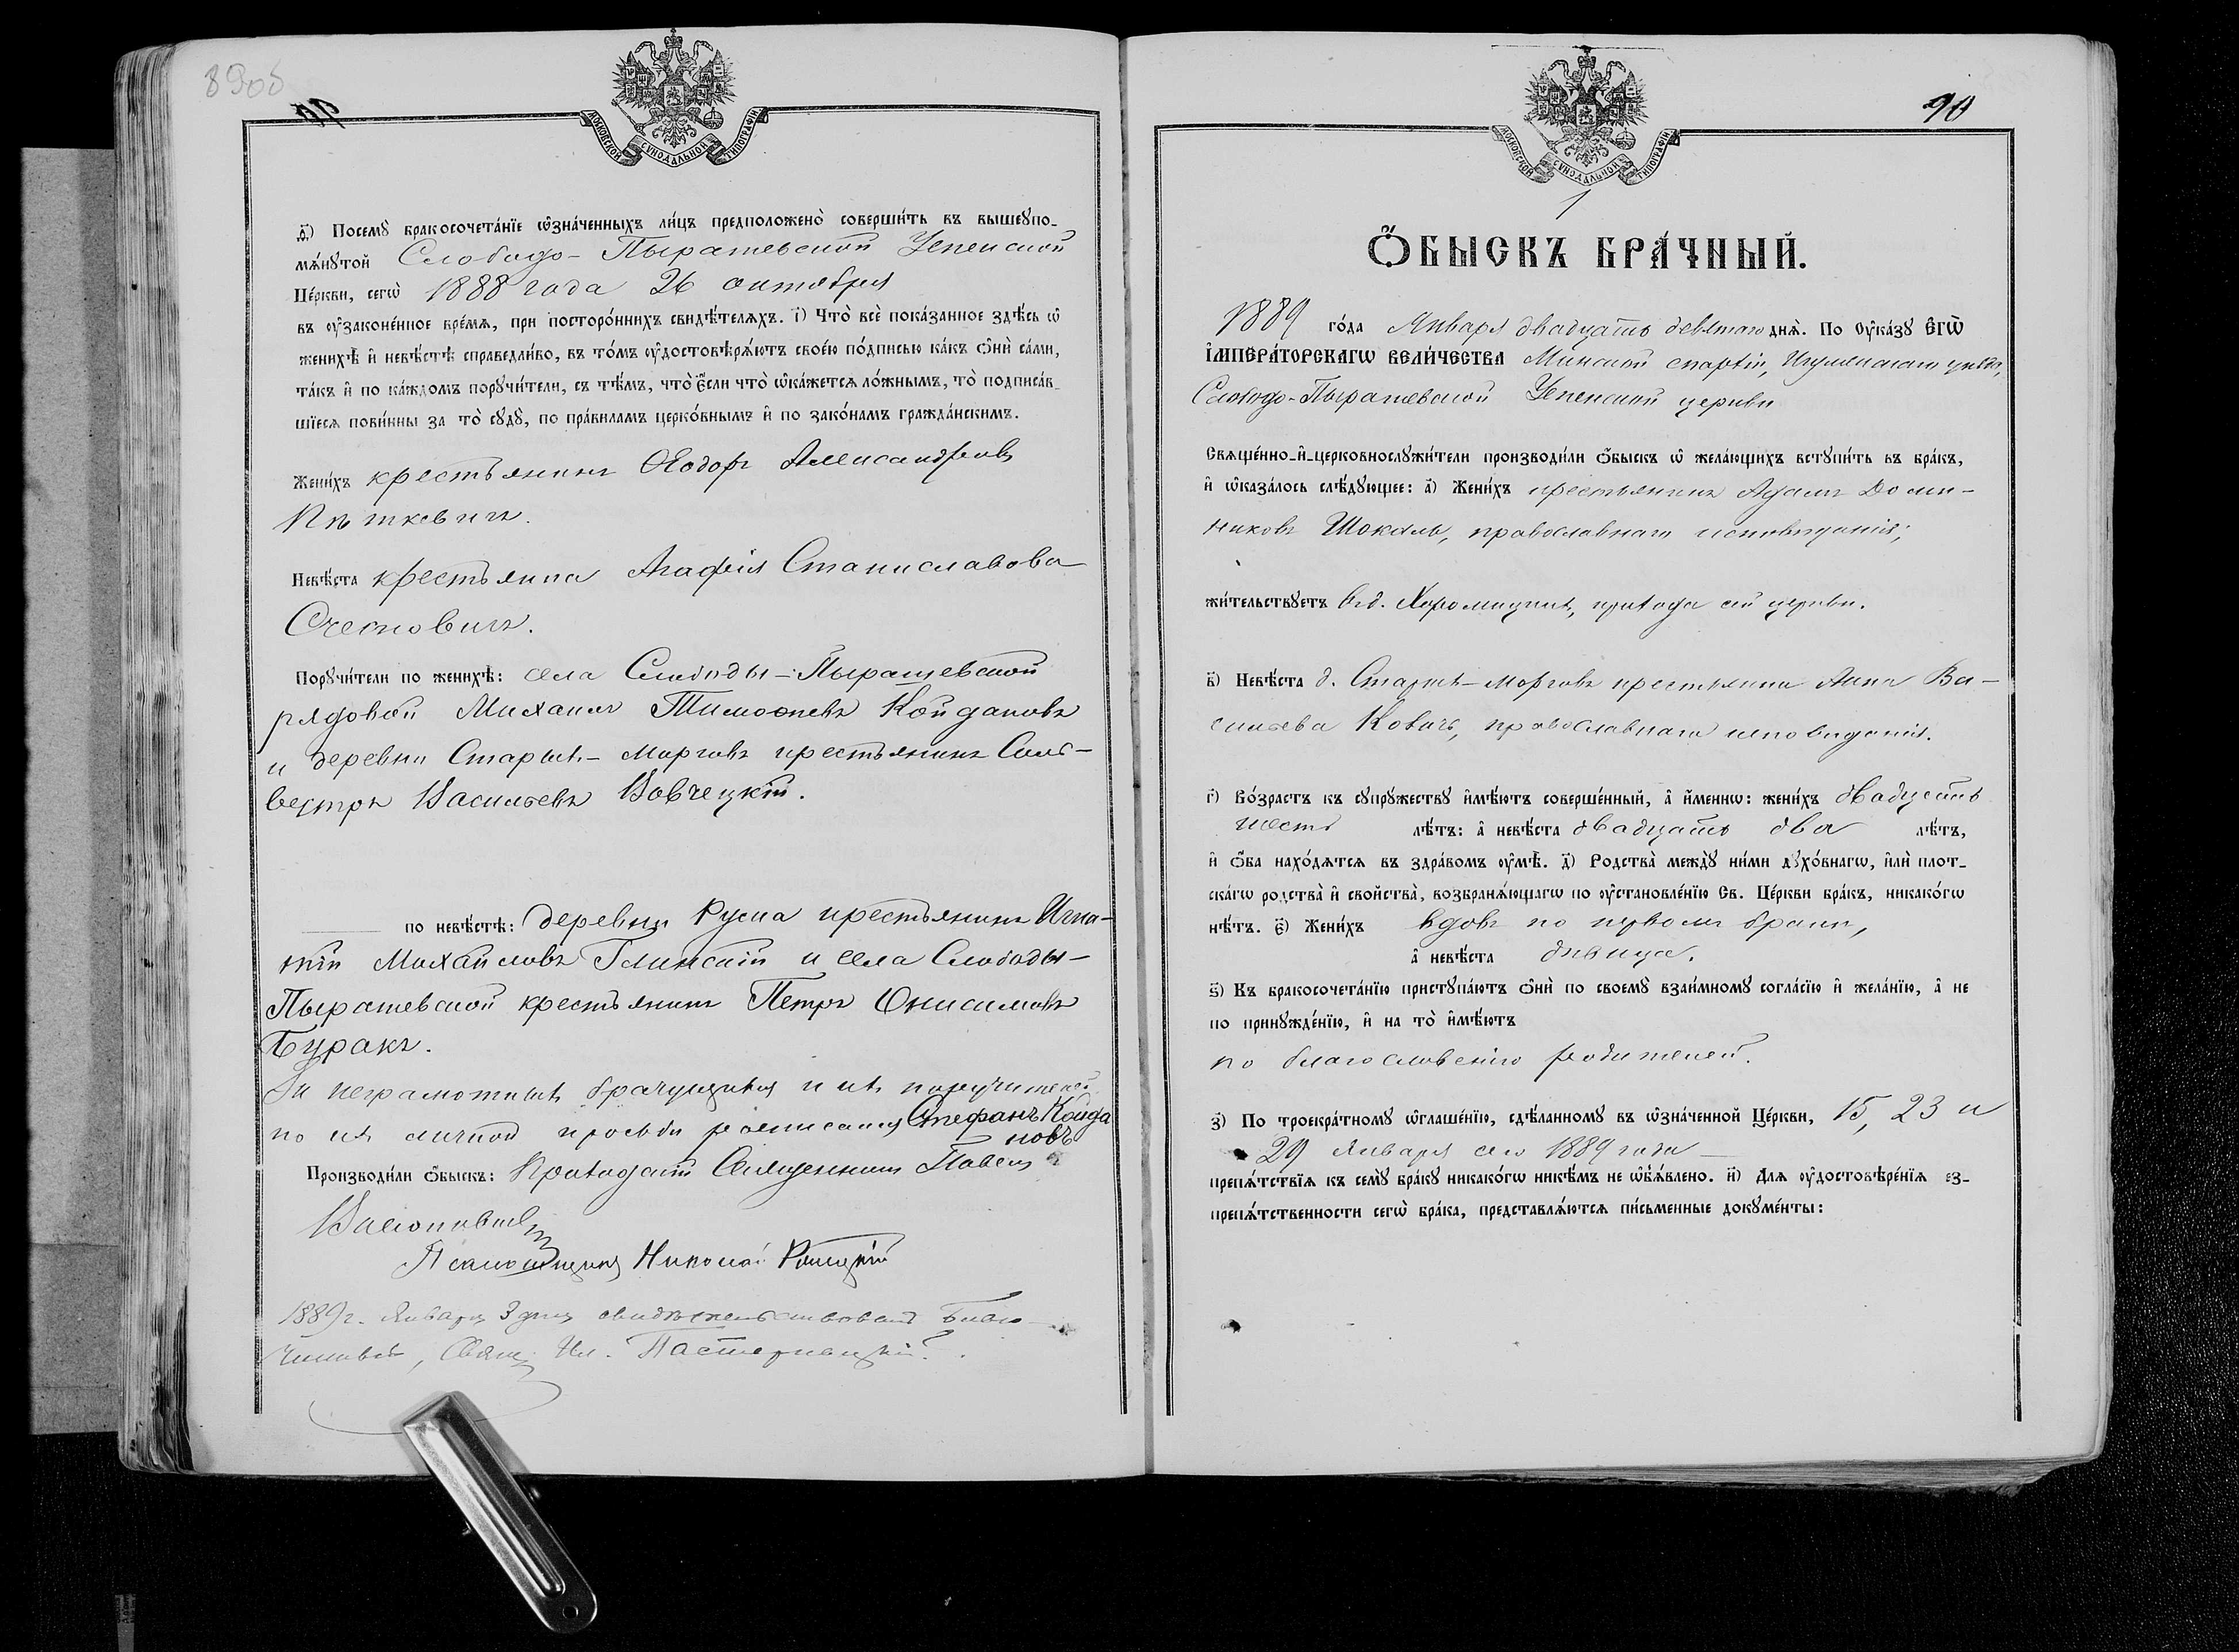 89об
90
МОСКОВСКОЙ СѴНОДАЛЬНОЙ ТИПОГРАФІИ
ѳ҃) Посемꙋ̀ бракосочета́нїе ѡ҆зна́ченныхъ ли́цъ предположено̀ соверши́ть въ вышеꙋпо-
мѧ́нꙋтой Слободо-Пырашевской Успенской
Це́ркви, сегѡ̀ 1888 года 26 октября
въ ᲂу҆законе́нное вре́мѧ, при посторо́ннихъ свидѣ́телѧхъ. і҃) Что̀ всѐ пока́занное здѣ́сь ѡ҆
женихѣ̀ и҆ невѣ́стѣ справедли́во, въ то́мъ ᲂу҆достовѣрѧ́ютъ свое́ю по́дписью ка́къ ѻ҆нѝ са́ми,
та́къ и҆ по ка́ждомъ порꙋчи́тели, съ тѣ́мъ, что̀ є҆́сли что̀ ѡ҆ка́жетсѧ ло́жнымъ, то̀ подписа́в-
шїесѧ пови́нны за то̀ сꙋдꙋ̀, по пра́виламъ церко́внымъ и҆ по зако́намъ гражда́нскимъ.
Жени́хъ крестьянинъ Ѳеодоръ Александровъ
Пѣткевичъ.
Невѣ́ста крестьянка Агафія Станиславова
Счесновичъ.
Порꙋчи́тели по женихѣ̀: села Слободы-Пырашевской
рядовой Михаилъ Тимоѳеевъ Койдановъ
и деревни Старыхъ-Морговъ крестьянинъ Силь-
вестръ Васильевъ Вовчецкій.
по невѣ́стѣ: деревни Русиа крестьянинъ Игна-
тій Михайловъ Глинскій и села Слободы-
Пырашевской крестьянинъ Петръ Онисимовъ
Буракъ.
За неграмотныхъ брачущихся и ихъ поручителей
по ихъ личной просьбѣ росписался Стефанъ Койда
новъ
Производи́ли ѻ҆́быскъ: Приходскій Священникъ Павелъ
Псаломщикъ Николай
1889 г. Января 3 дня свидѣтельствовалъ Благо-
чинный, Свящ. Ил. Пастернацкій.
90
МОСКОВСКОЙ СѴНОДАЛЬНОЙ ТИПОГРАФІИ
1
Ѻ҆́БЫСКЪ БРА́ЧНЫЙ.
1889 го́да Января двадцать девятаго днѧ̀. По Оу҆ка́зꙋ Є҆гѡ̀
І҆МПЕРА́ТОРСКАГѠ ВЕЛИ́ЧЕСТВА Минской епархіи, Игуменскаго уѣзда,
Слободо-Пырашевской Успенской церкви
Свѧще́нно-и҆-церковнослꙋжи́тели производи́ли ѻ҆́быскъ ѡ҆ жела́ющихъ встꙋпи́ть въ бра́къ,
и҆ ѡ҆каза́лось слѣ́дꙋющее: а҃) Жени́хъ крестьянинъ Адамъ Доми-
никовъ Шокаль, православнаго исповѣданія;
жи́тельствꙋетъ въ д. Хоромицкихъ, прихода сей церкви.
в҃) Невѣ́ста д. Старыхъ-Морговъ крестьянка Анна Ва-
сильева Ковачъ, православнаго исповѣданія.
г҃) Во́зрастъ къ сꙋпрꙋ́жествꙋ и҆мѣ́ютъ соверше́нный, а҆ и҆́меннѡ: жени́хъ двадцать
шесть лѣ́тъ: а҆ невѣ́ста двадцать два лѣ́тъ,
и҆ ѻ҆́ба нахо́дѧтсѧ въ здра́вомъ ᲂу҆мѣ̀. д҃) Родства̀ междꙋ̀ ни́ми дꙋхо́внагѡ, и҆лѝ плот-
ска́гѡ родства̀ и҆ свойства̀, возбранѧ́ющагѡ по ᲂу҆становле́нїю Св. Це́ркви бра́къ, никако́гѡ
нѣ́тъ. є҃) Жени́хъ вдовъ по первомъ бракѣ,
а҆ невѣ́ста дѣвица.
ѕ҃) Къ бракосочета́нїю пристꙋпа́ютъ ѻ҆нѝ по своемꙋ̀ взаи́мномꙋ согла́сїю и҆ жела́нїю, а҆ не
по принꙋжде́нїю, и҆ на то̀ и҆мѣ́ютъ
по благословенію родителей.
з҃) По троекра́тномꙋ ѡ҆глаше́нїю, сдѣ́ланномꙋ въ ѡ҆зна́ченной Це́ркви, 15, 23 и
29 Января сего 1889 года
препѧ́тствїѧ къ семꙋ̀ бра́кꙋ никако́гѡ никѣ́мъ не ѡ҆б̾ѧ́влено. и҃) Длѧ ᲂу҆достовѣре́нїѧ ез-
препѧ́тственности сегѡ̀ бра́ка, представлѧ́ютсѧ пи́сьменные докꙋме́нты: